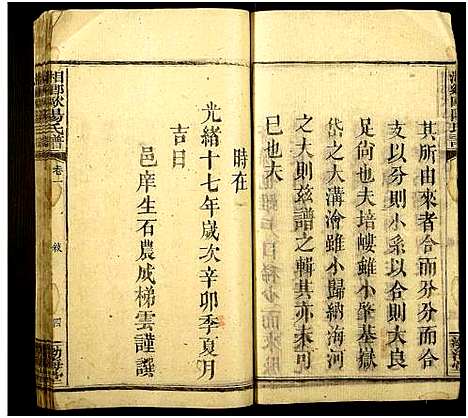 其所由來者合而分分而合
支以分則小系以合則大良
足尙也夫培嶁雖小肇基嶽
岱之大溝澮雖小歸納海河
之大則玆譜之輯其亦未可
已也夫
時在
光緒十七年歲次辛卯季夏月
吉日
邑庠生石農成梯雲謹譔
湘鄉歐陽氏譜
卷一
四